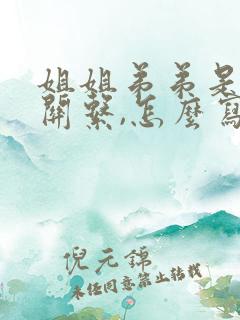 姐姐弟弟是
關繫,怎麼寫
倪元錦
未經同意禁止轉載